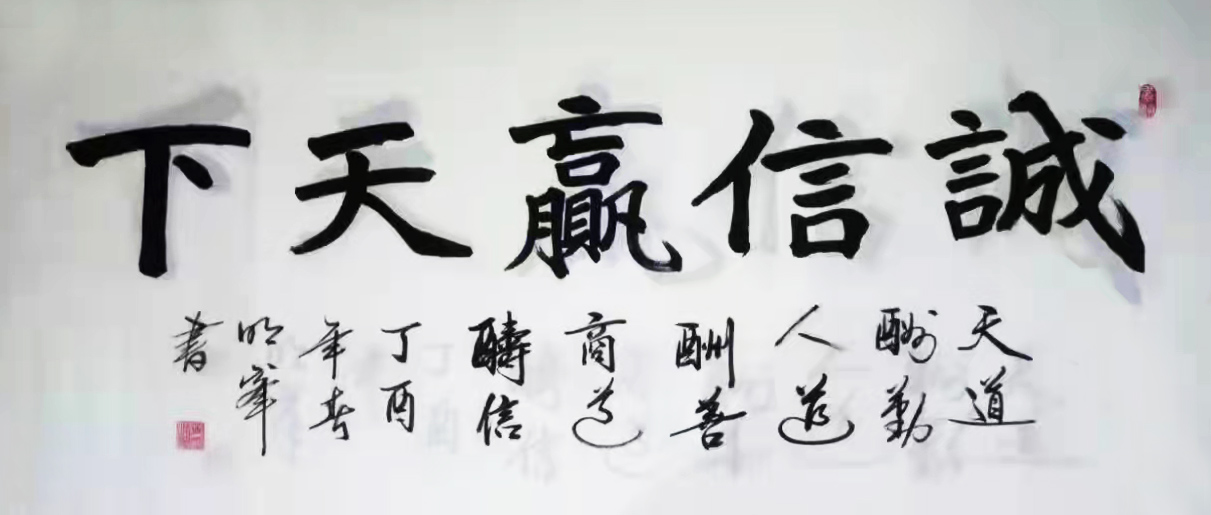 誠信贏天下
天道
酬勤
人道
酬善
商道
醻信
丁酉
年春
明峯
書